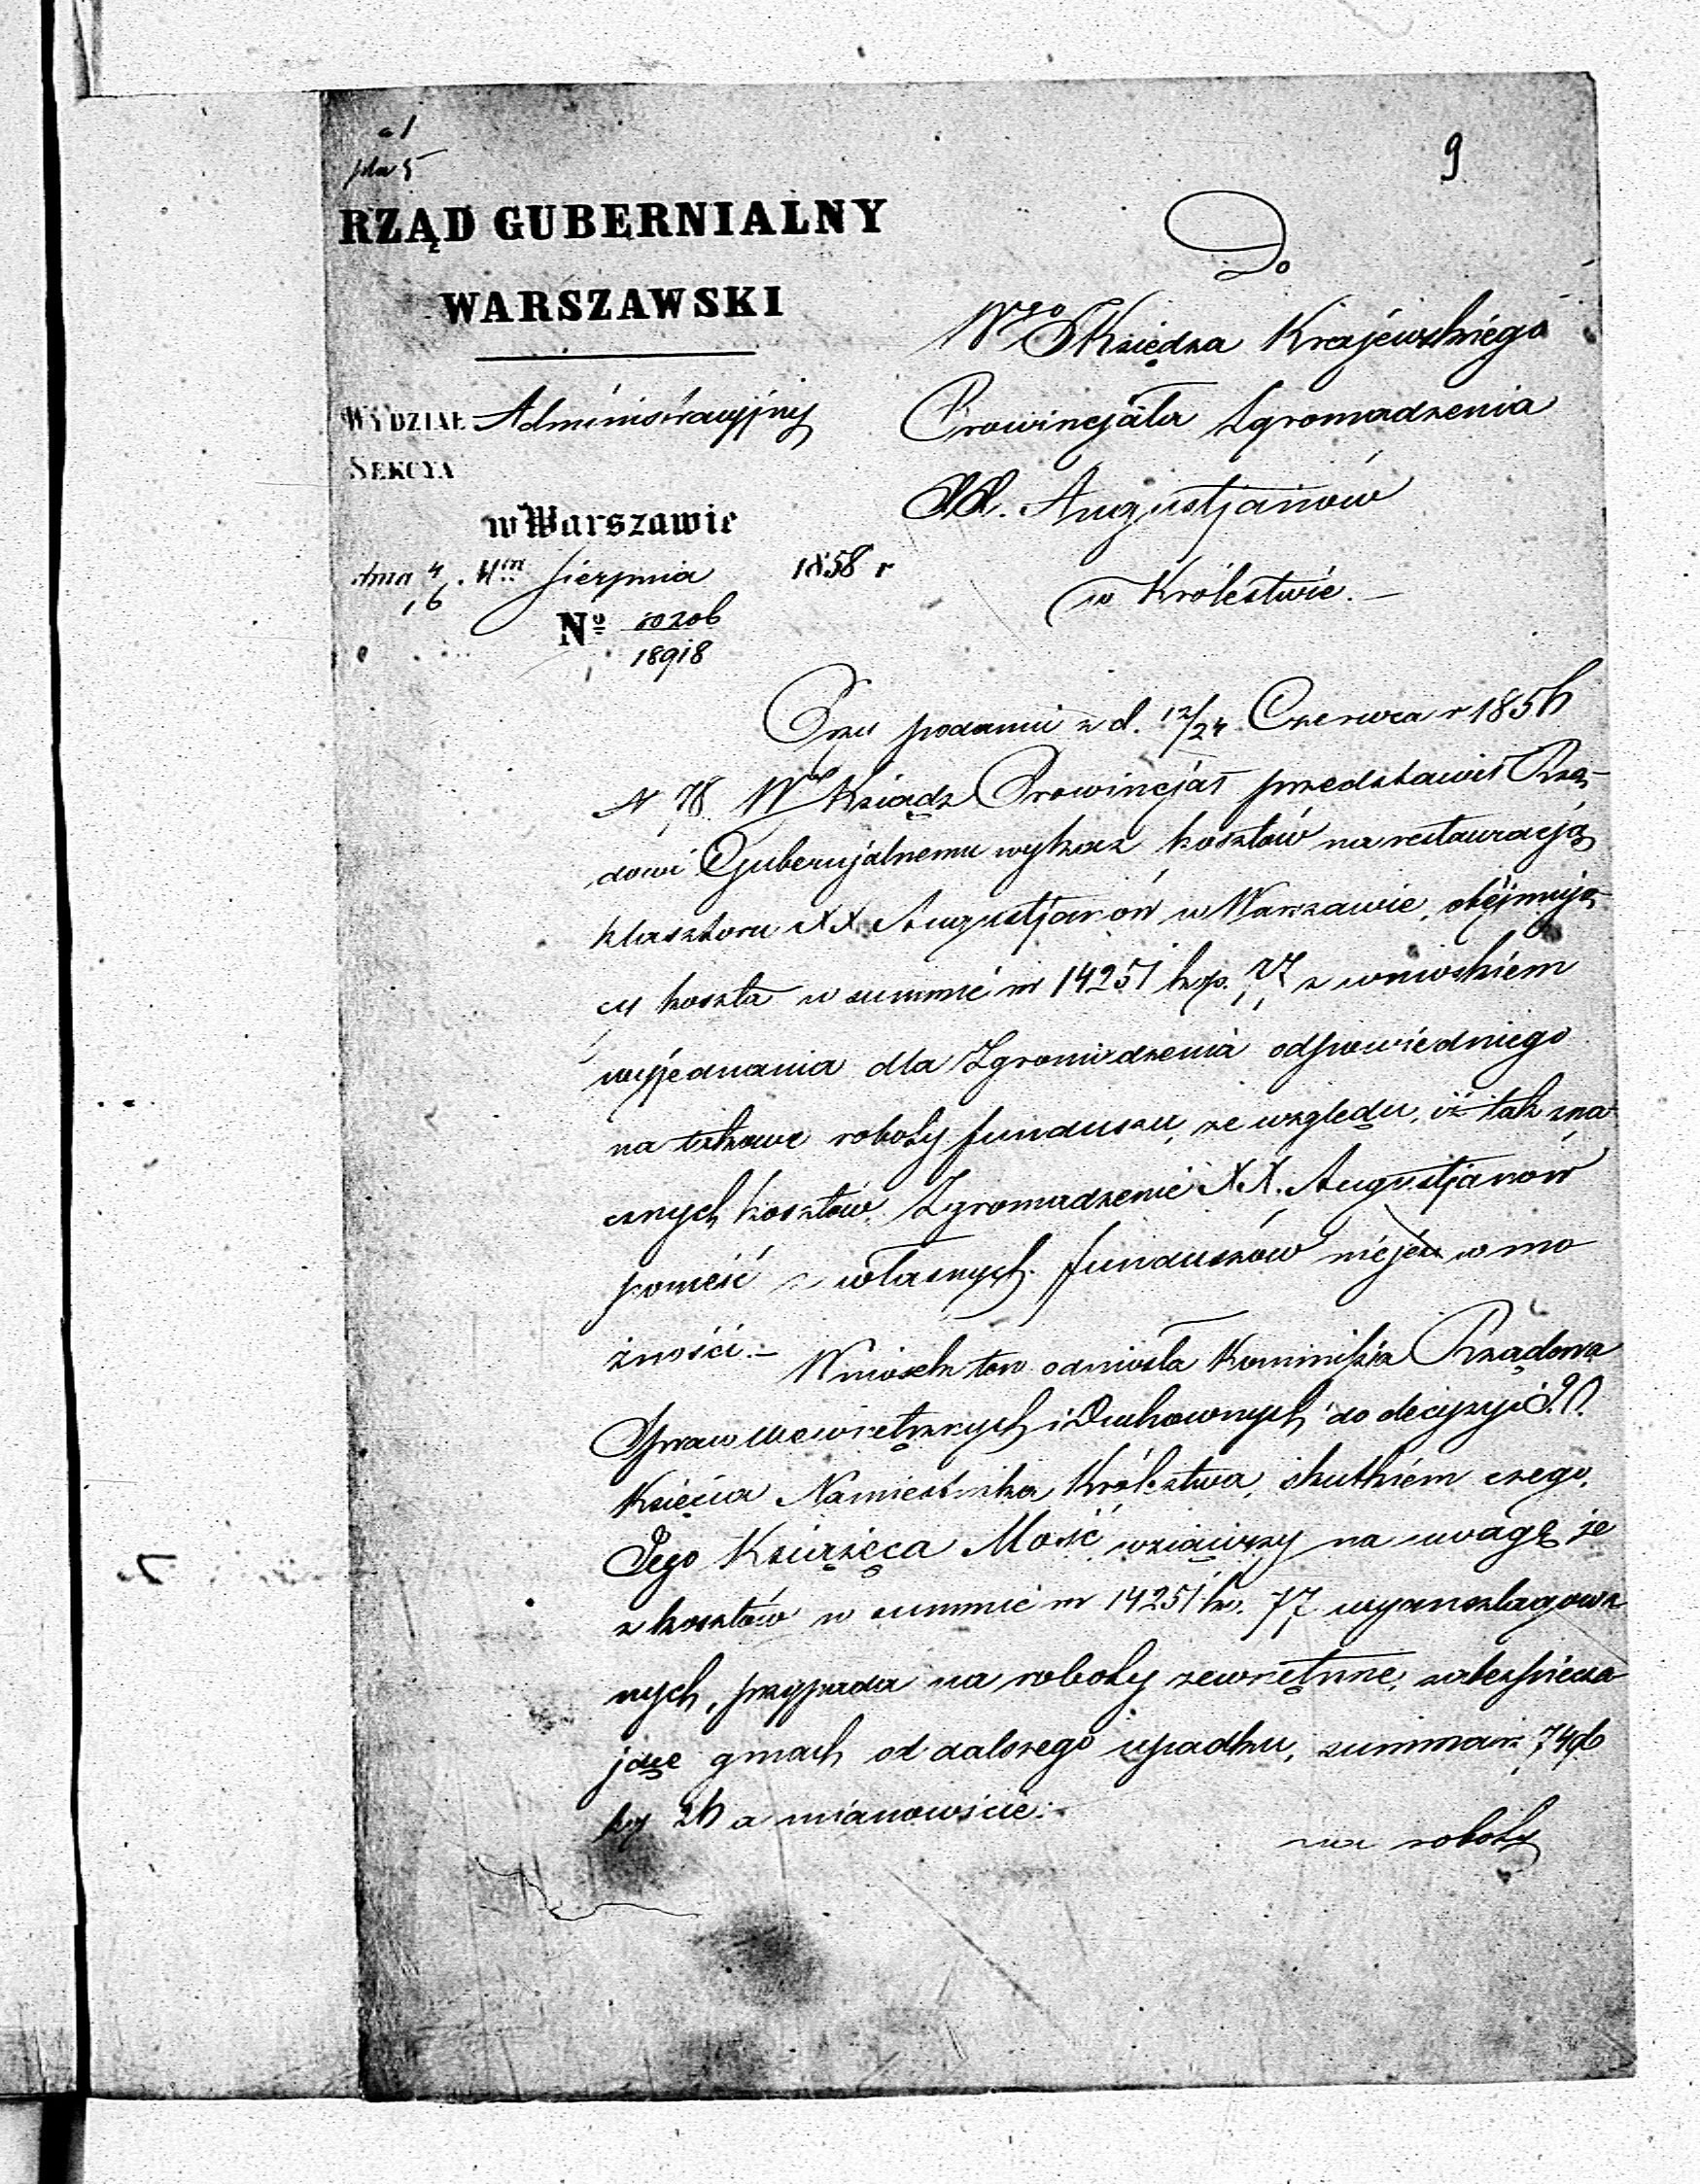 9
RZĄD GUBERNIALNY
WARSZAWSKI
WYDZIAŁ Administracyjny
SEKCYA
w Warszawie
dnia 4/16 Sierpnia 1858 r
Nº 50206/18918
Do
Wgo JKsiędza Krajewskiego
Prowincjała Zgromadzenia
XX. Augustjanów
w Królestwie. –
Przy podaniu z d. 12/24 Czerwca r 1856
N 78 Wny Ksiądz Prowincjał przedstawił Rzą-
dowi Gubernjalnemu wykaz kosztów na restauracją
klasztoru XX. Augustjanów w Warszawie, obejmują
cy koszta w summie rs 14251 kop. 77 z wnioskiem
wyjednania dla Zgromadzenia odpowiedniego
na takowe roboty funduszu, ze względu, iż tak zna
cznych kosztów Zgromadzenie XX. Augustjanów
ponieść z własnych funduszów nie jest w mo
żności. –
Wniosek ten odniosła Kommissja Rządowa
Spraw Wewnętrznych i Duchownych do decyzyi J. O.
Księcia Namiestnika Królestwa, skutkiem czego,
Jego Książęca Mość wziąwszy na uwagę że
z kosztów w summie rs 14251 k. 77 wyanszlagowa
nych, przypada na roboty zewnętrzne, zabezpiecza
jące gmach od dalszego upadku, summa rs 7496
kop 26 a mianowicie:
na roboty